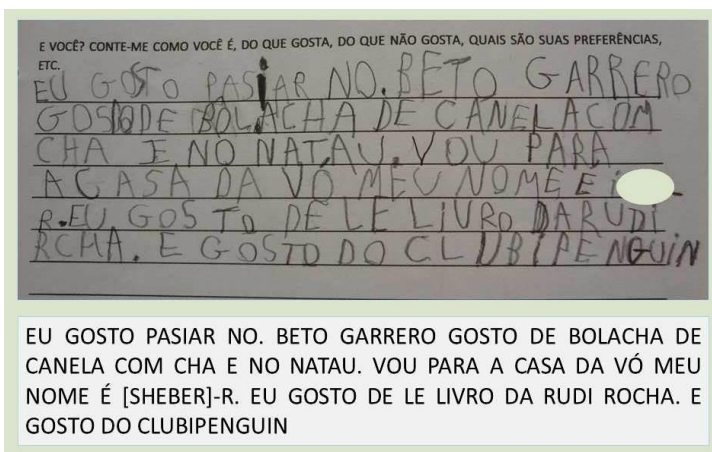 E VOCÊ? CONTE-ME COMO VOCÊ É, DO QUE GOSTA, DO QUE NÃO GOSTA, QUAIS SÃO SUAS PREFERÊNCIAS,
ETC.
EU GOSTO PASiAR NO. BETO GARRERO
GOSTO DE BOLACHA DE CANELA COM
CHA E NO NATAU. VOU PARA
A CASA DA VÓ MEU NOME E
R. EU GOSTO DE LE LiVRO DA RUDI
RCHA. E GOSTO DO CLUBIPENGUiN
EU GOSTO PASIAR NO. BETO GARRERO GOSTO DE BOLACHA DE
CANELA COM CHA E NO NATAU. VOU PARA A CASA DA VÓ MEU
NOME É [SHEBER]-R. EU GOSTO DE LE LIVRO DA RUDI ROCHA. E
GOSTO DO CLUBIPENGUIN